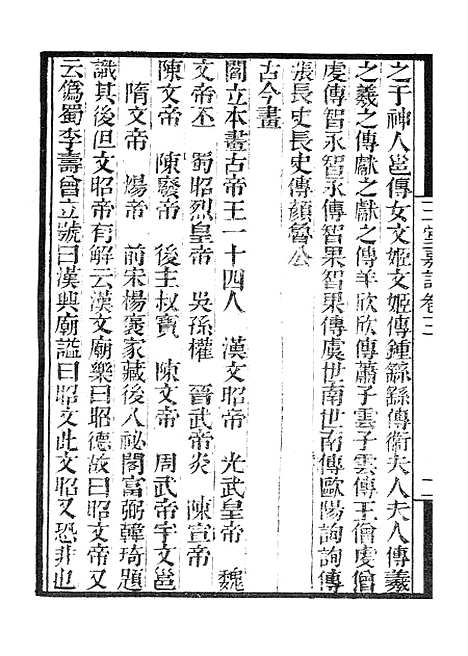 玉堂嘉話卷三
二
之于神人邕傳女文姬文姬傳鍾繇繇傳衞夫人夫人傳羲
之羲之傳獻之獻之傳羊欣欣傳蕭子雲子雲傳王僧虔僧
虔傳智永智永傳智果智果傳虞世南世南傳歐陽詢詢傳
張長史長史傳顏魯公
古今畫
閻立本畫古帝王一十四人　漢文昭帝　光武皇帝　魏
文帝丕　蜀昭烈皇帝　吳孫權　晉武帝炎　陳宣帝
陳文帝　陳廢帝　後主叔寶　陳文帝　周武帝宇文邕
隋文帝　煬帝　前宋楊褒家藏後入祕閣富弼韓琦題
識其後但文昭帝有解云漢文廟樂曰昭德故曰昭文帝又
云僞蜀李壽曾立號曰漢興廟謚曰昭文此文昭又恐非也